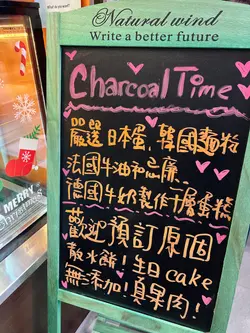 Natural wind
Write a better future
Charcoal Time
嚴選日本蛋、韓國麵粉
法國牛油和忌廉
德國牛奶製作千層蛋糕
歡迎預訂原個
散水餅!生日cake
無添加!真果肉!
MERRY
Christmas